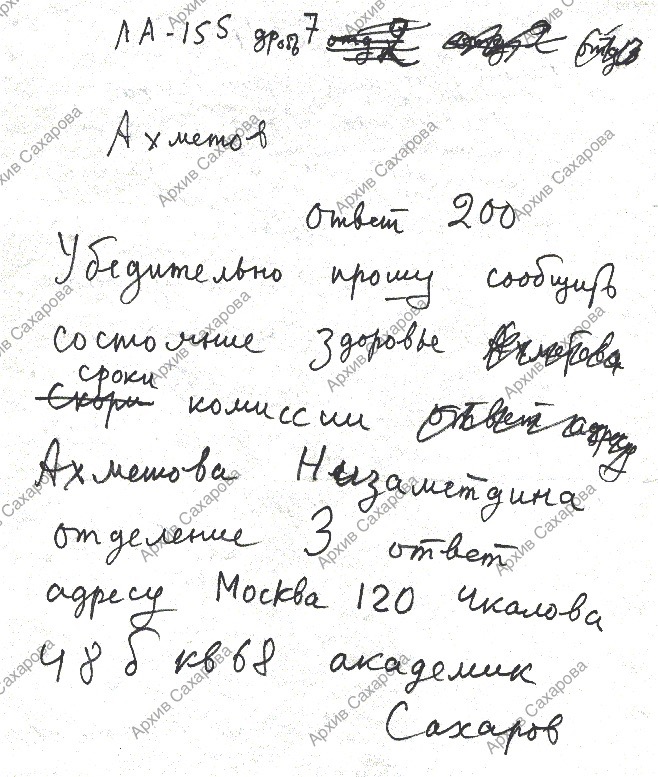 ЛА-155 дробь 7
Ахметов
ответ 200
Убедительно прошу сообщить
состояние здоровье
сроки
комиссии
Ахметова Низаметдина
отделение 3 ответ
адресу Москва 120 Чкалова
48 б кв 68 академик
Сахаров
Архив Сахарова